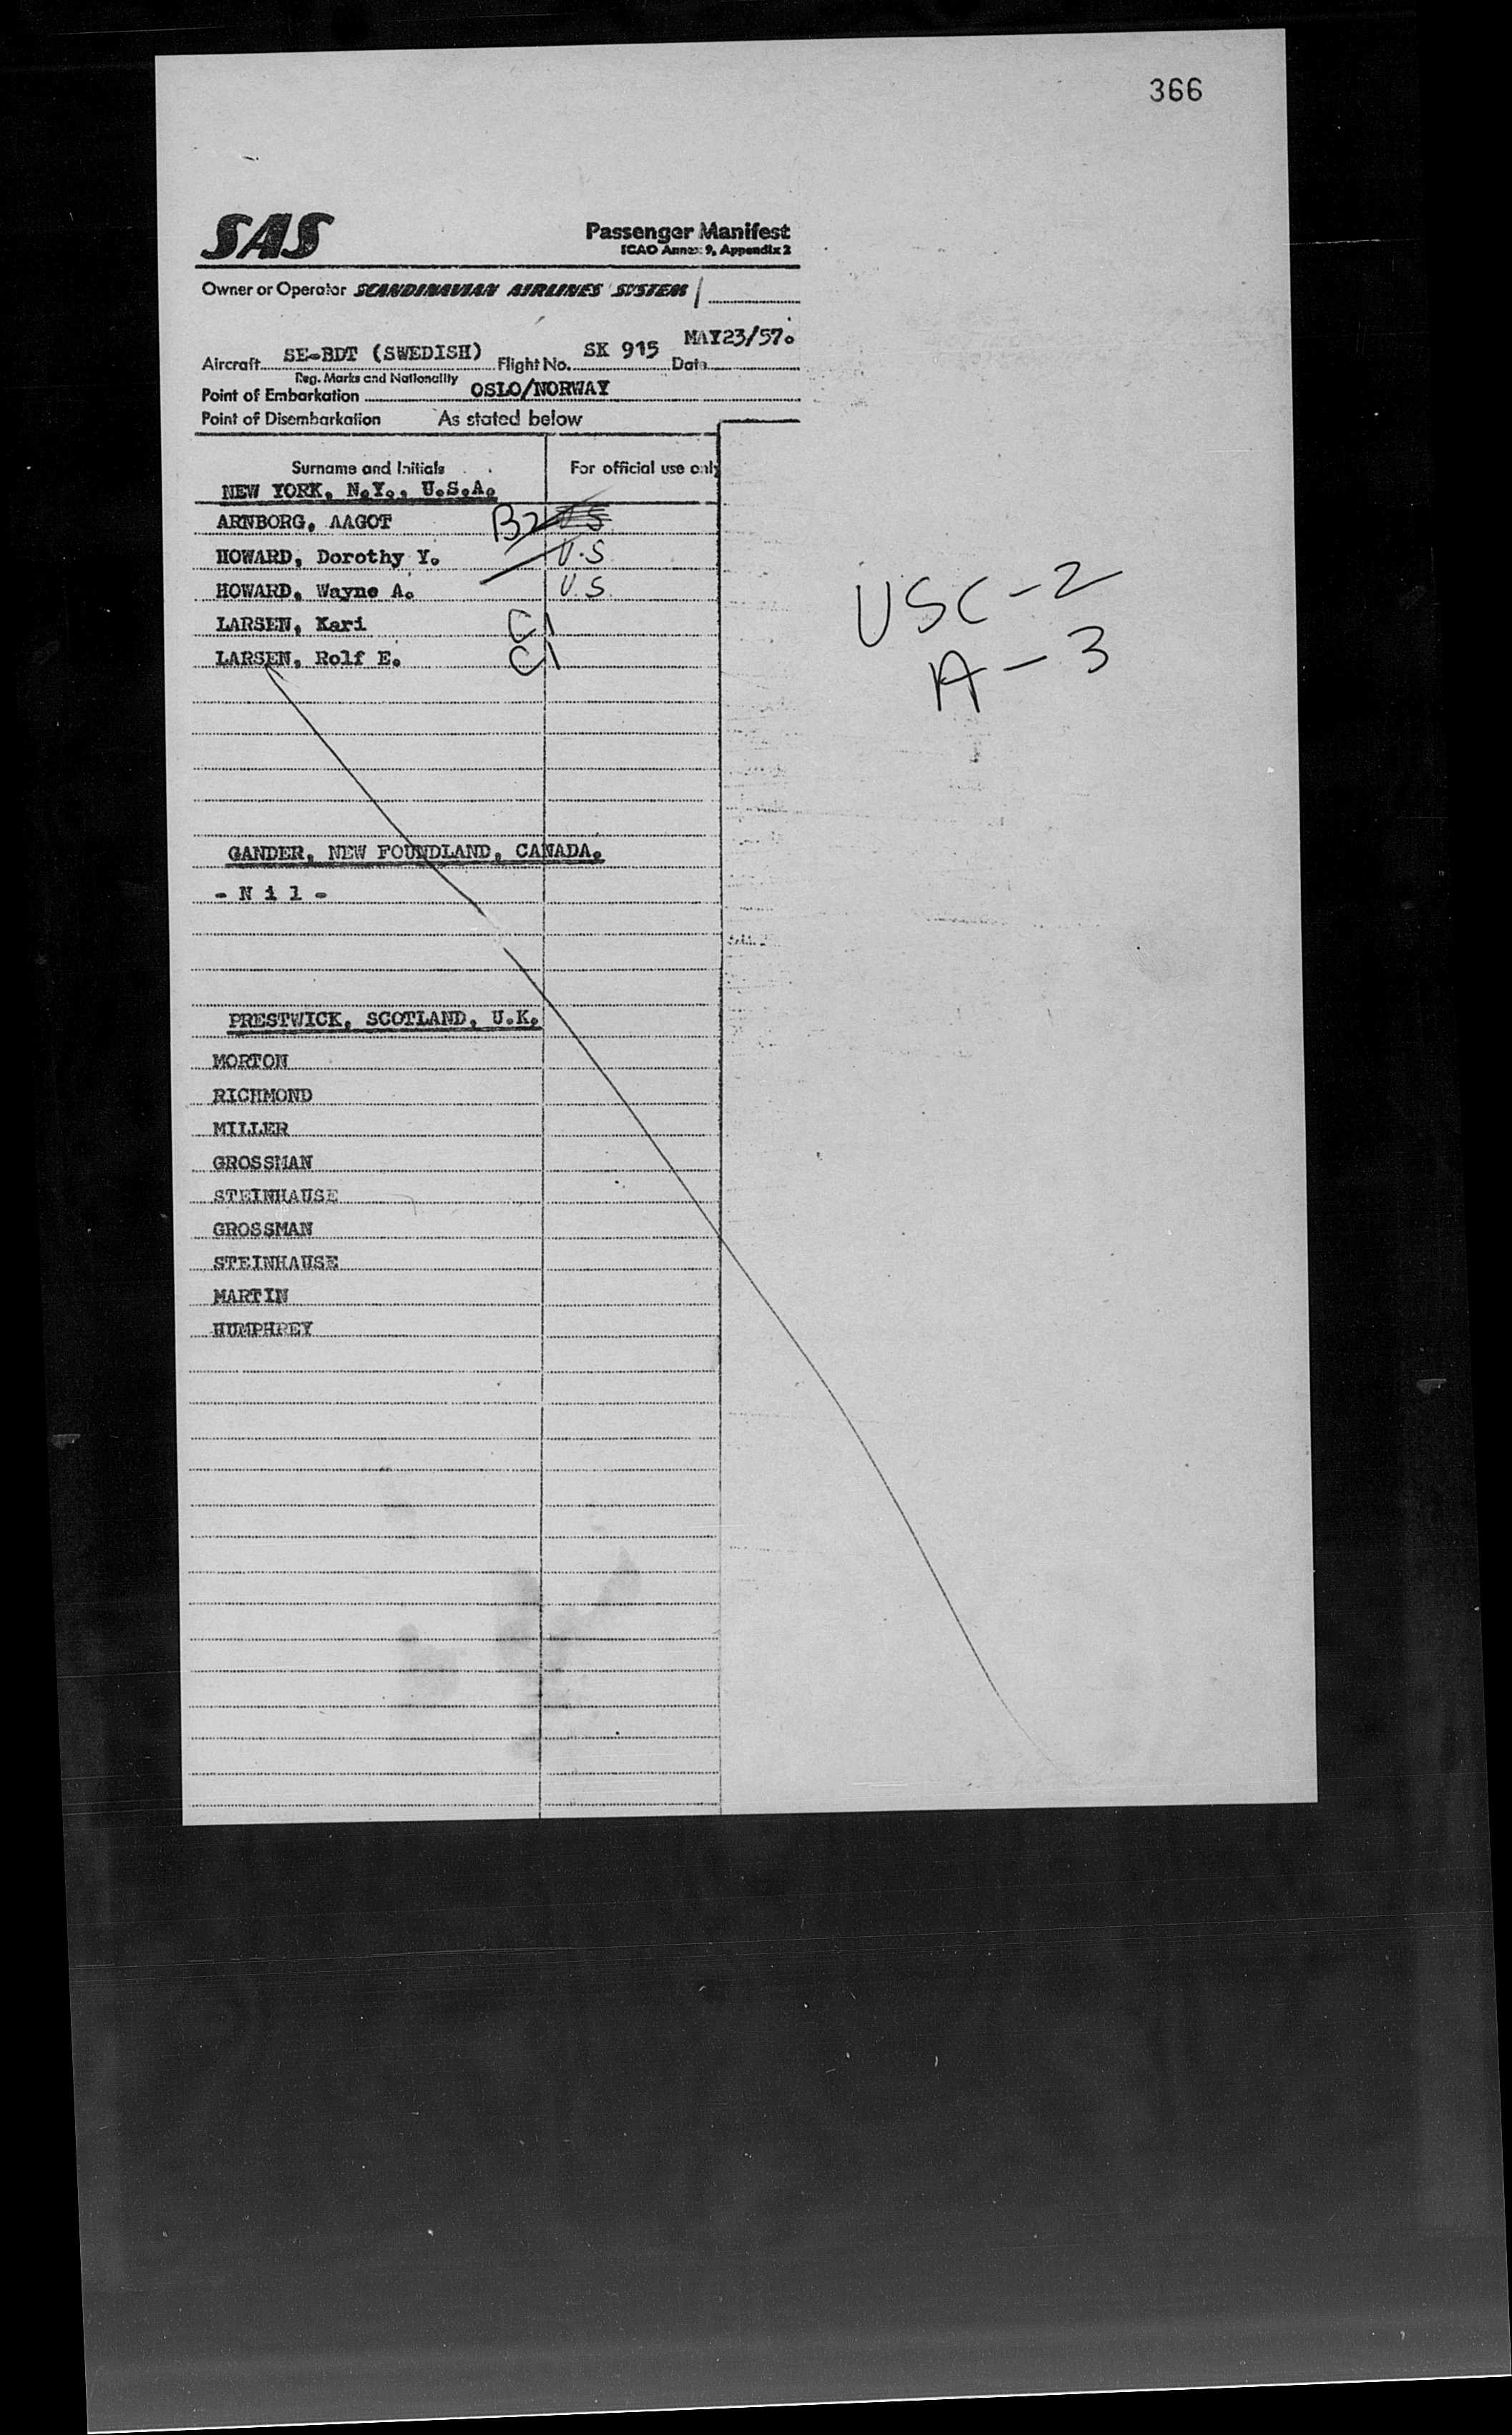 366
SAS Passenger Manifest
ICAO Annex 9, Appendix 2
Owner or Operator SCANDINAVIAN AIRLINES SYSTEM
MAY23/57.
Aircraft SE-BDT (SWEDISH) Flight No. SK 915 Date
Reg. Marks and Nationality
Point of Embarkation OSLO/NORWAY
Point of Disembarkation As stated below
Surname and Initials For official use only
NEW YORK, N.Y., U.S.A.
ARNBORG, AAGOT B2 U S
HOWARD, Dorothy Y. U.S
HOWARD, Wayne A. U.S.
LARSEN, Kari C1
LARSEN, Rolf E. C1
USC-2
A-3
GANDER, NEW FOUNDLAND, CANADA.
- N i l -
PRESTWICK, SCOTLAND, U.K.
MORTON
RICHMOND
MILLER
GROSSMAN
STEINHAUSE
GROSSMAN
STEINHAUSE
MARTIN
HUMPHREY